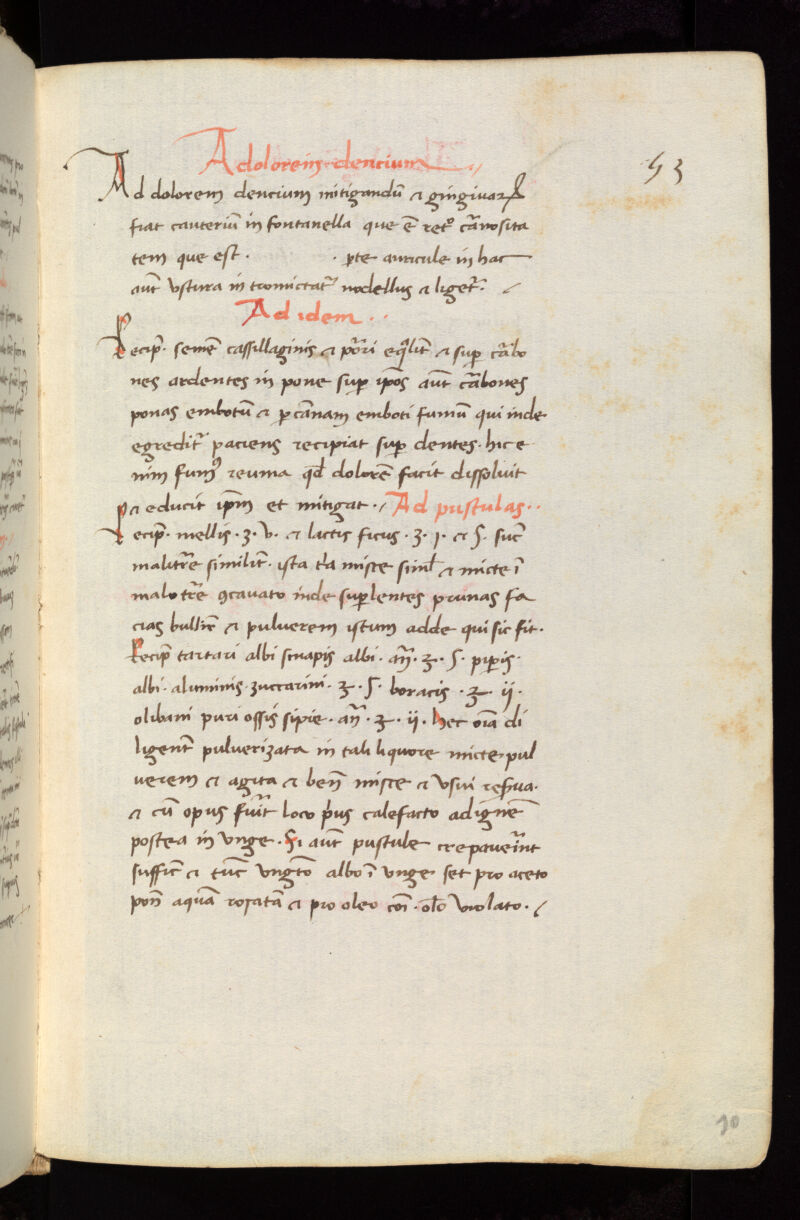 Ad dolorem dencium
53
Ad dolorem dencium mitigandū ⁊ gingivarꝝ
fiat cauteriū in fontanella que ē retͦ carnosita
tem que est · · pte auricule in hac
aut̄ ustura in tromictat᷑ nodellus ⁊ liget᷑ ·
Ad idem · ·
Recip̄ · semē cassillaginis ⁊ porri eq̄lit̄ ⁊ sup carbo
nes ardentes in pone sup ip̄os aut̄ carbones
ponas embotū ⁊ p cannam emboti fumū qui inde
egredit᷑ paciens recipiat sup dentes · hic e
nim fumꝰ reuma qd̄ dolorē facit dissolvit
⁊ educit ip̄m et mitigat · Ad pustulas · ·
Recip̄ · mellis · ʒ · v · ⁊ lactis ficus · ʒ · i · ⁊ s̄ · succ̄
similit̄ · ista misce siml̄ ⁊ micte ī
9cavato inde sup lentes prunas fa
cias bullir̄ ⁊ pulverem istum adde qui sic fit ·
Recip̄ tartari albi sinapis albi · an̄ · ʒ · s̄ · pip̄is
albi · aluminis zuccarini · ʒ · s̄ · boracis · ʒ · ii ·
olibani puri ossis sipie · an̄ · ʒ · ii · hec oīa di
ligent̄ pulverizata in tali liquore micte pul
verem ⁊ agita ⁊ ben̄ misce ⁊ usui res̄va ·
⁊ cū opus fuīt loco p̄us calefacto ad ignē
postea in unge · Si aut̄ pustule crepaverint
suffic̄ ⁊ tūc ungt̄o albo ī unge set pro aceto
pon̄ aquā rosatā ⁊ pro oleo cōi · ol̄o violato ·
90